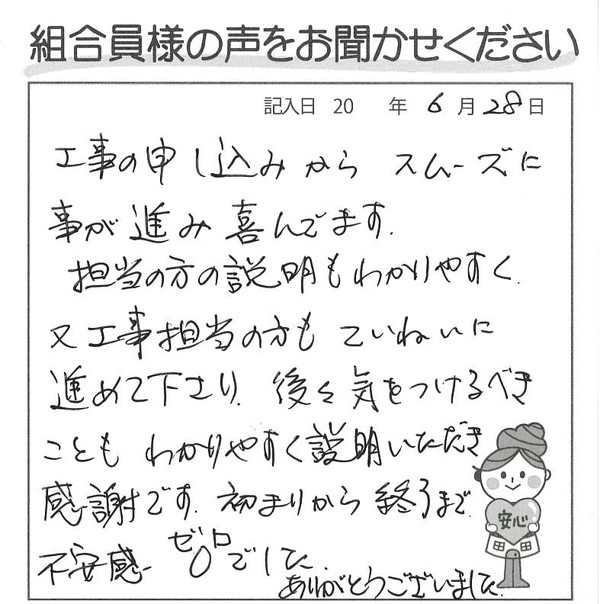 組合員様の声をお聞かせください
記入日 20 年 6月 28日
工事の申し込みから スムーズに
事が進み喜んでます.
担当の方の説明もわかりやすく.
又工事担当の方も ていねいに
進めて下さり. 後々気をつけるべき
ことも わかりやすく説明いただき
感謝です. 初まりから 終了まで.
不安感 ゼロ 0でした.
ありがとうございました.
安心